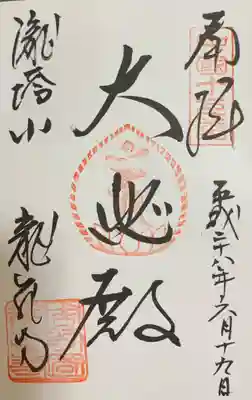 奉拝
平成二十八年六月十九日
大悲殿
瀧塔山
龍蔵寺